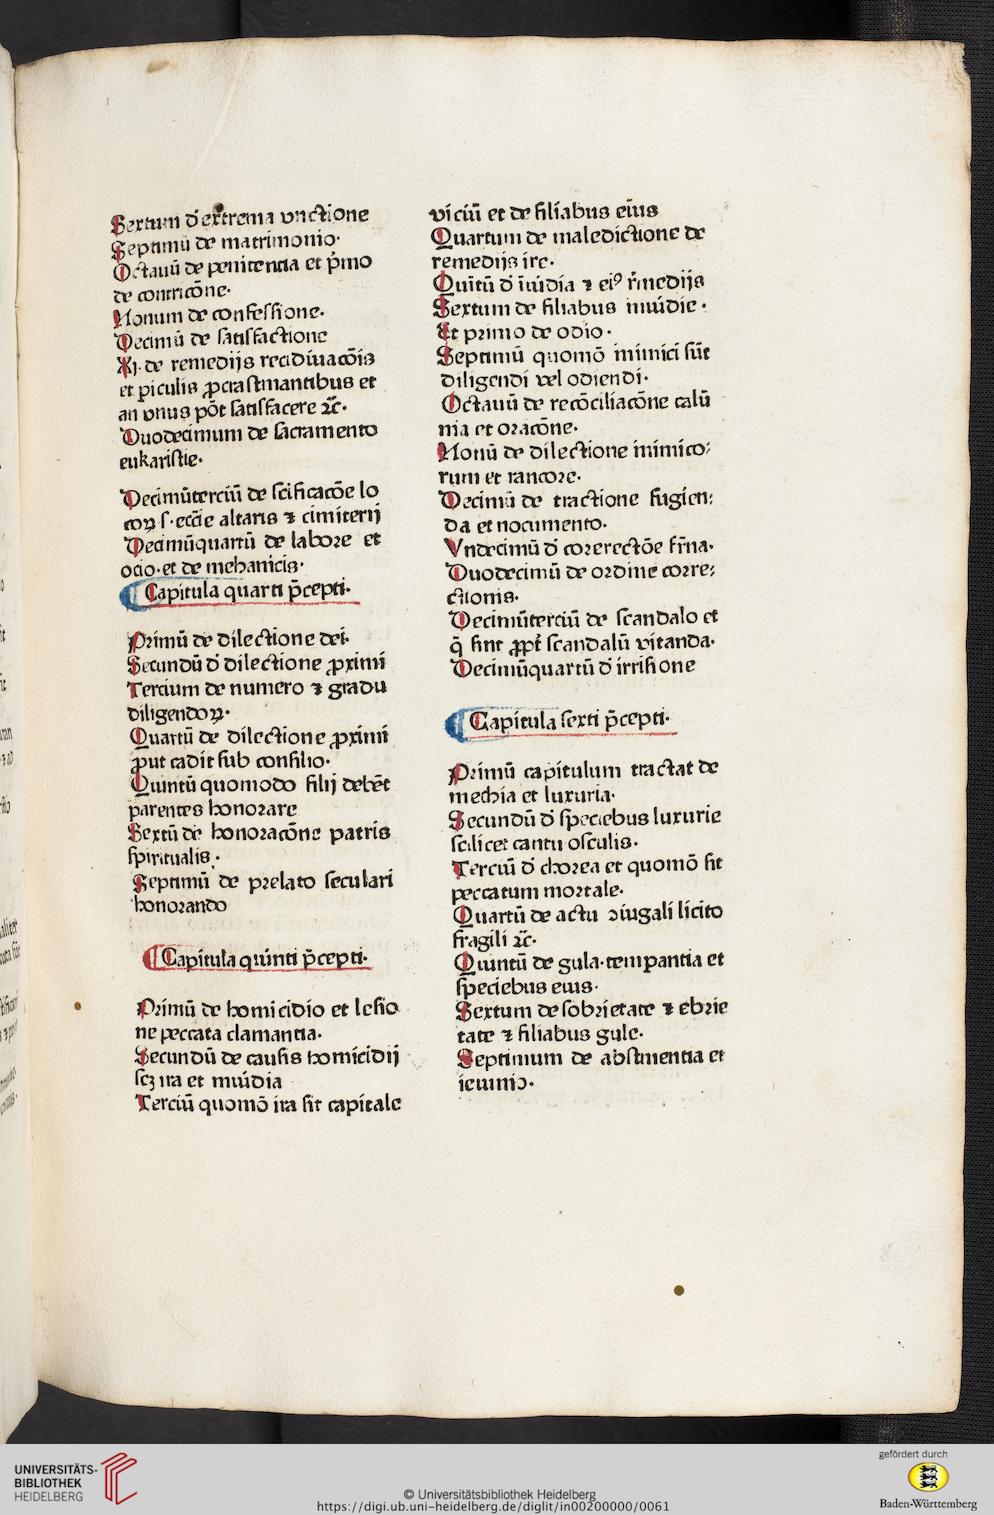 Sextum d̄ extrema vnctione
Septimū de matrimonio·
Octauū de penitentia et p̄mo
de contricōne·
Nonum de confessione·
Decimū de satisfactione
Xj· de remedijs recidiuacōis
et piculis ꝓcrastinantibus et
an vnus pōt satisfacere ⁊c̄·
Duodecimum de sacramento
eukaristie·
Decimūterciū de scificacōe lo
coꝝ s· eccīe altaris ⁊ cimiterij
Decimūquartū de labore et
ocio· et de mehanicis·
Capitula quarti p̄cepti·
Primū de dilectione dei·
Secundū d̄ dilectione ꝓximi
Tercium de numero ⁊ gradu
diligendoꝝ·
Quartū de dilectione ꝓximi
ꝓut cadit sub consilio·
Quintū quomodo filij debēt
parentes honorare
Sextū de honoracōne patris
spiritualis·
Septimū de prelato seculari
honorando
Capitula quinti p̄cepti·
Primū de homicidio et lesio
ne peccata clamantia·
Secundū de causis homicidij
scꝫ ira et inuidia
Terciū quomō ira sit capitale
viciū et de filiabus eius
Quartum de maledictione de
remedijs ire·
Quītū d̄ īuidia ⁊ eiꝰ r̄medijs
Sextum de filiabus inuidie·
Et primo de odio·
Septimū quomō inimici sūt
diligendi vel odiendi·
Octauū de recōciliacōne calū
nia et oracōne·
Nonū de dilectione inimico⸗
rum et rancore·
Decimū de tractione fugien⸗
da et nocumento·
Vndecimū d̄ corerectōe fr̄na·
Duodecimū de ordine corre⸗
ctionis·
Decimūterciū de scandalo et
q̄ sint ꝓpt̄ scandalū vitanda·
Decimūquartū d̄ irrisione
Capitula sexti p̄cepti·
Primū capitulum tractat de
mechia et luxuria·
Secundū d̄ speciebus luxurie
scilicet cantu osculis·
Terciū d̄ chorea et quomō sit
peccatum mortale·
Quartū de actu ꝯiugali licito
fragili ⁊c̄·
Quintū de gula· tempantia et
speciebus eius·
Sextum de sobrietate ⁊ ebrie
tate ⁊ filiabus gule·
Septimum de abstinentia et
ieiunio·
UNIVERSITÄTS-
BIBLIOTHEK
HEIDELBERG
© Universitätsbibliothek Heidelberg
https://digi.ub.uni-heidelberg.de/diglit/in00200000/0061
gefördert durch
Baden-Württemberg